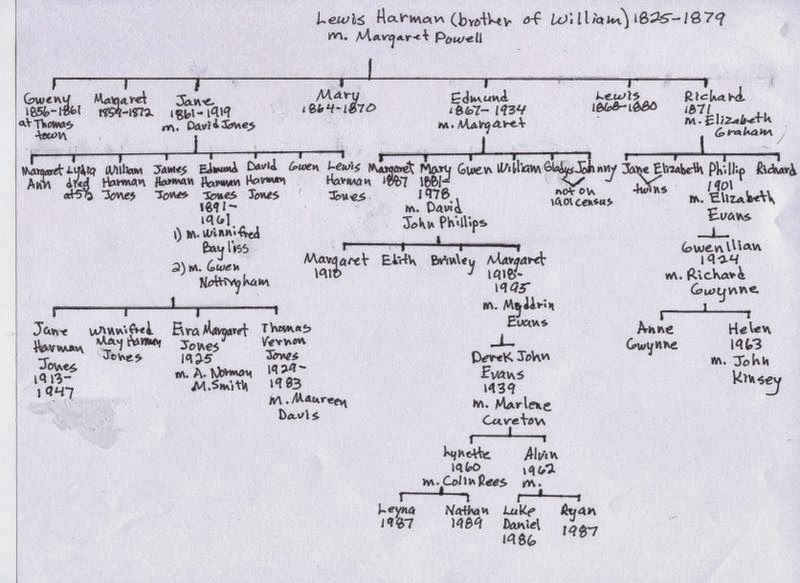 Lewis Harman (brother of William) 1825-1879
m. Margaret Powell
Gweny
1856-1861
at Thomas
town
Margaret
1859-1872
Jane
1861-1919
m. David Jones
Mary
1864-1870
Edmund
1867-1934
m. Margaret
Lewis
1868-1880
Richard
1871
m. Elizabeth
Graham
Margaret
Ann
Lydia
died
at 5½
William
Harman
Jones
James
Harman
Jones
Edmund
Harman
Jones
1891-
1961
1) m. Winnifred
Bayliss
2) m. Gwen
Nottingham
David
Harman
Jones
Gwen
Lewis
Harman
Jones
Margaret
1887
Mary
1881-
1978
m. David
John Phillips
Gwen
William
Gladys
Johnny
not on
1901 census
Jane
Elizabeth
twins
Phillip
1901
m. Elizabeth
Evans
Richard
Margaret
1910
Edith
Brinley
Margaret
1918-
1995
m. Myddrin
Evans
Gwenllian
1924
m. Richard
Gwynne
Jane
Harman
Jones
1913-
1947
Winnifred
May Harman
Jones
Eira Margaret
Jones
1925
m. A. Norman
M. Smith
Thomas
Vernon
Jones
1929-
1983
m. Maureen
Davis
Derek John
Evans
1939
m. Marlene
Cureton
Anne
Gwynne
Helen
1963
m. John
Kinsey
Lynette
1960
m. Colin Rees
Alvin
1962
m.
Leyna
1987
Nathan
1989
Luke
Daniel
1986
Ryan
1987